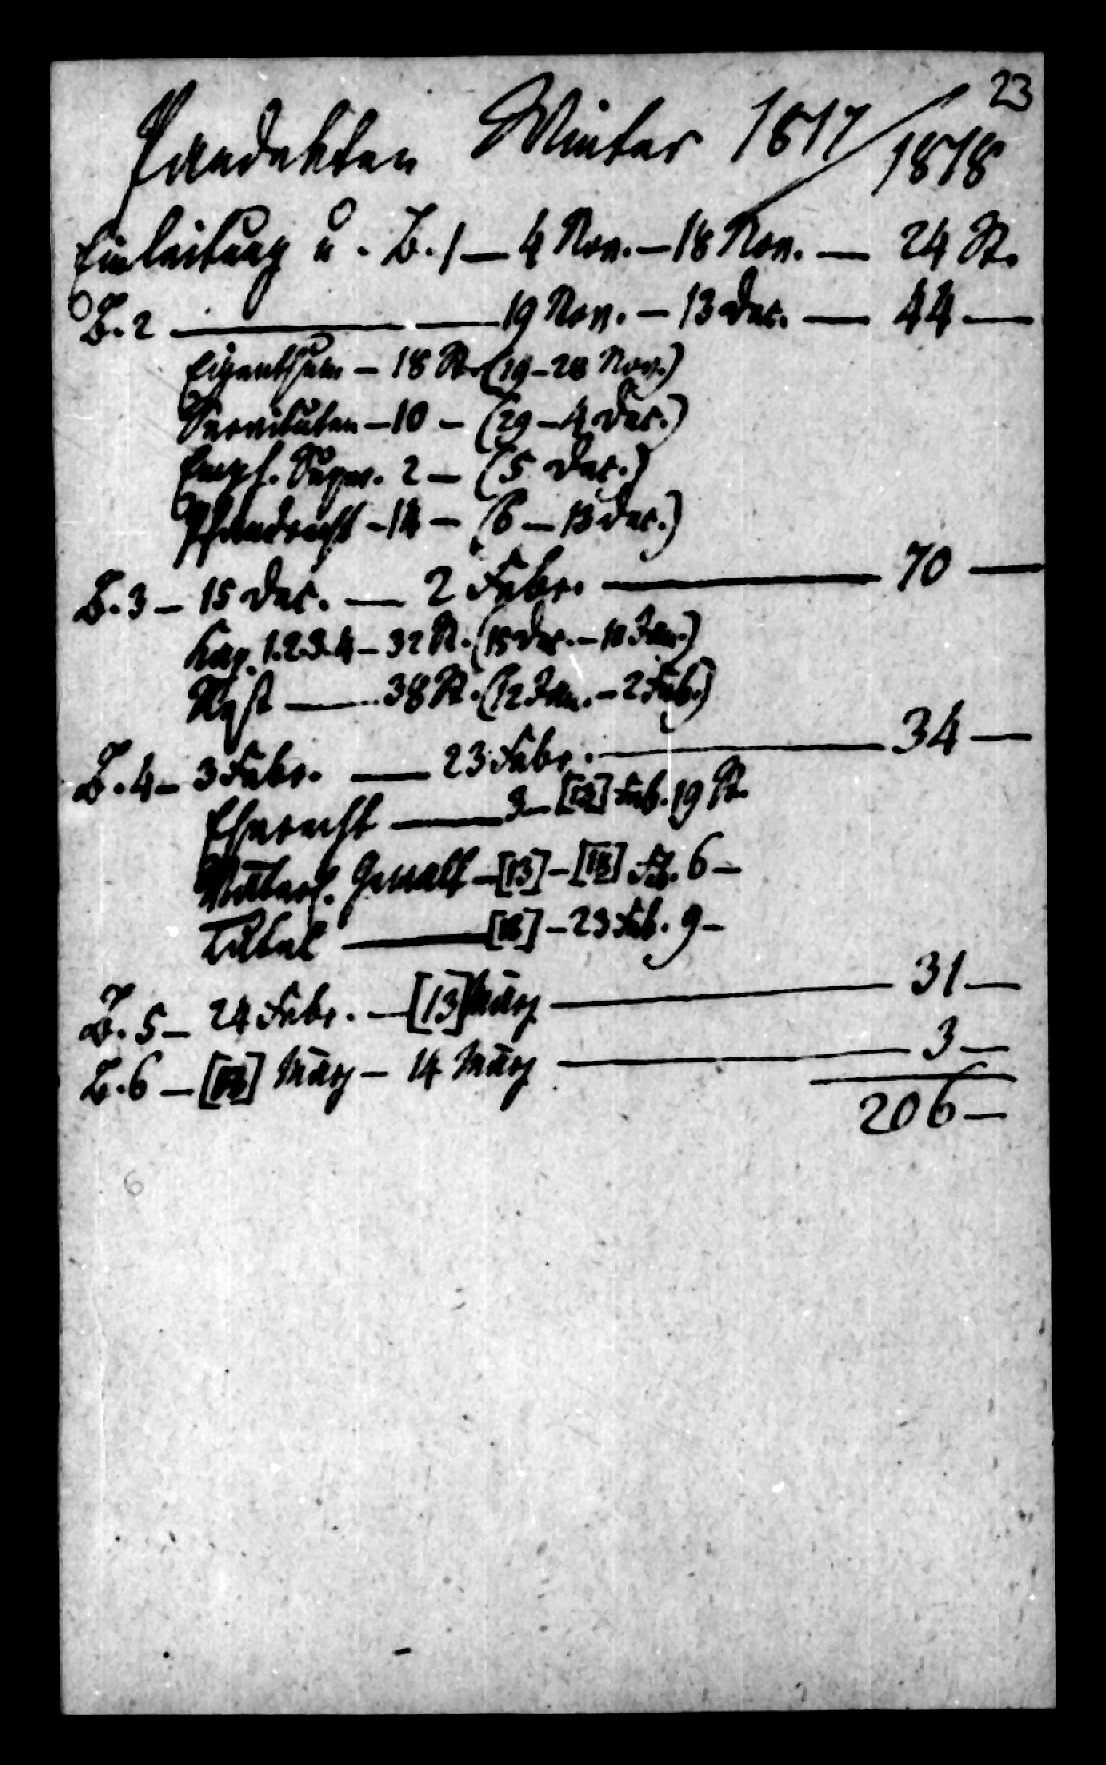 23
Pandekten Winter 1817/1818
Einleitung u. B. 1 — 4 Nov. — 18 Nov. — 24 St.
B. 2 — 19 Nov. — 13 Dec. — 44 —
Eigenthum — 18 St. (19 — 28 Nov.)
Servituten — 10 — (29 — 4 Dec.)
Emph. Superf. 2 — (5 Dec.)
Pfandrecht — 14 — (6 — 13 Dec.)
B. 3 — 15 Dec. — 2 Febr. — 70 —
Kap. 1.2.3.4 — 32 St. (15 Dec. — Jan.)
Rest — 38 St. (12 Jan. — 2 Feb.)
B. 4 — 3 Febr. — 23 Febr. — 34 —
Eherecht — 3 — [13] Feb. 19 St.
Väterl. Gewalt — [13] — [18] Feb. 6 —
Tutel — [18] — 23 Feb. 9 —
B. 5 — 24 Febr. — [13] März — 31 —
B. 6 — [13] März — 14 März — 3 —
206 —
6